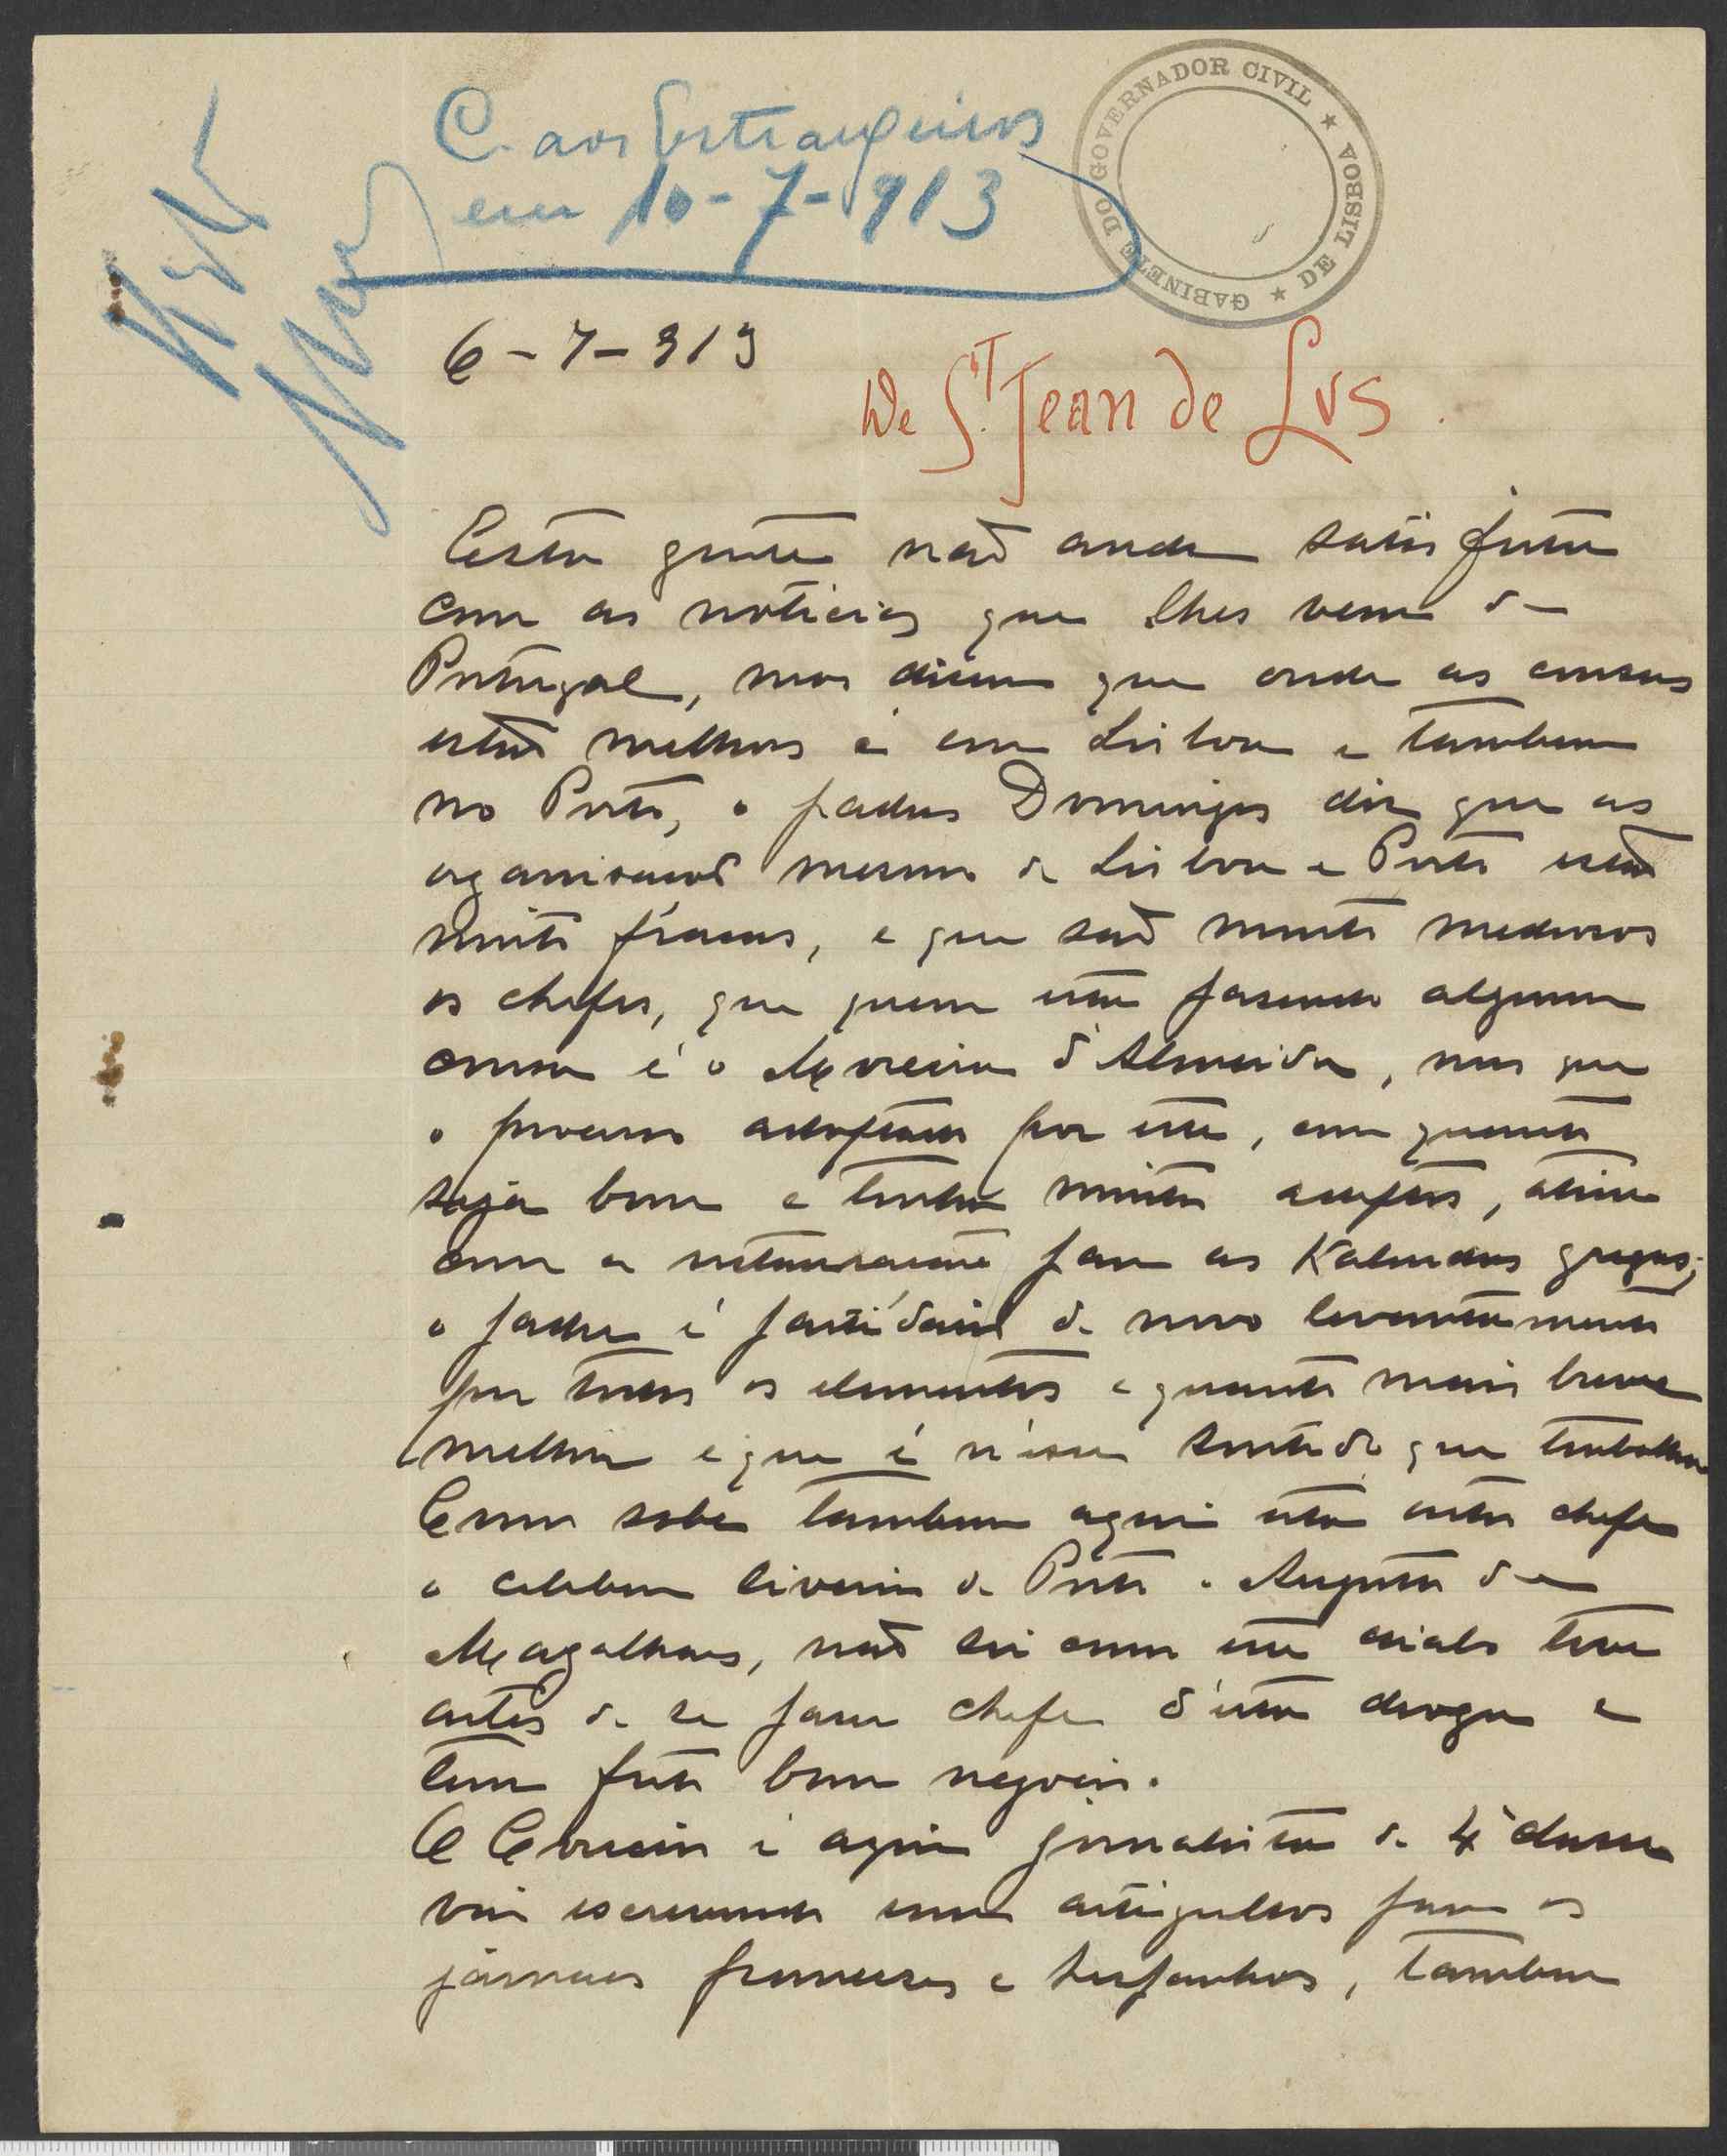 C. aos Estrangeiros
em 10-7-913
GABINETE DO GOVERNADOR CIVIL ★ DE LISBOA ★
6-7-913
De S.T Jean de Lus.
Esta gente não anda satisfeita
com as noticias que lhes vem de
Portugal, mas disem que onde as cousas
estão melhores é em Lisboa e tambem
no Porto, o padre Domingos diz que as
organisações mesmo de Lisboa e Porto estão
muito fracas, e que são muito medrosos
os chefes, que quem está fasendo alguma
cousa é o Moreira d'Almeida, mas que
o processo adoptado por este, com quanto
seja bom e tenha muitos adeptos, atira
com a restauração para as Kalendas gregas;
o padre é partidario de novo levantamento
por todos os elementos e quanto mais breve
melhor e que é n'esse sentido que trabalha
Como sabe tambem aqui está outro chefe
o celebre livreiro do Porto o Augusto de
Magalhães, não sei como este diabo teve
artes de se fazer chefe d'esta droga e
tem feito bom negocio.
O Correia é aqui jornalista de 4ª classe
vai escrevendo uns artigulhos para os
jornaes franceses e hespanhoes, tambem